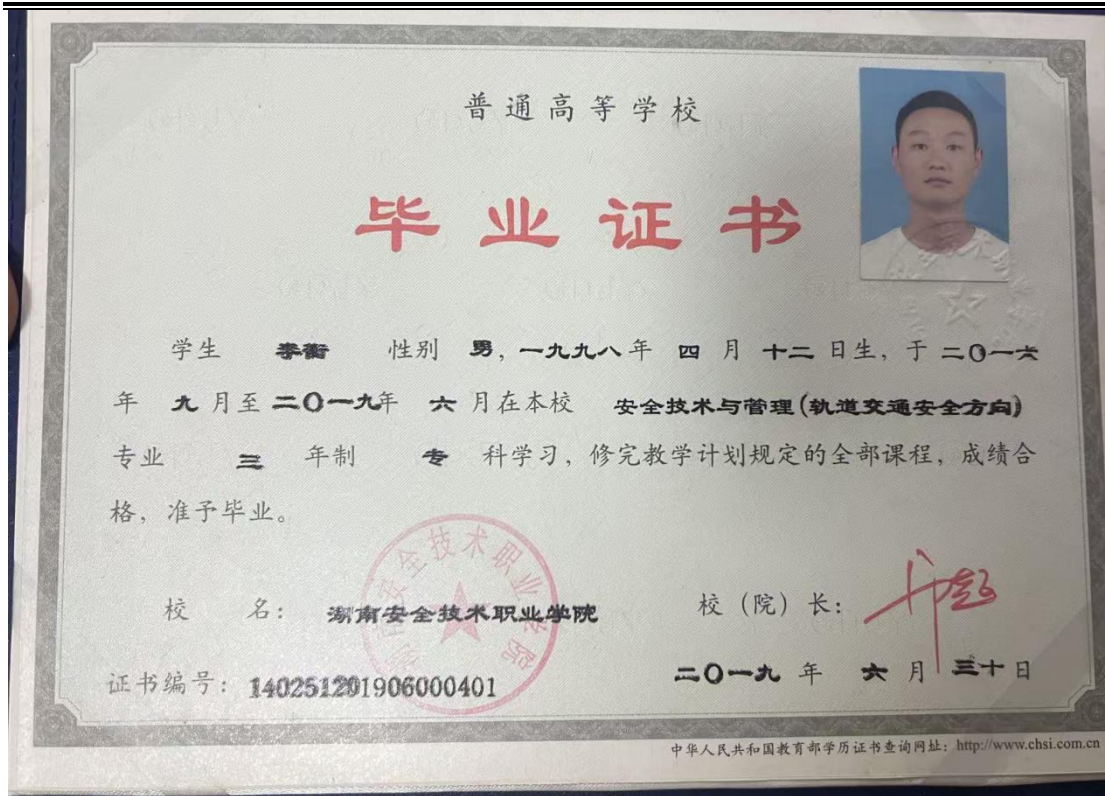 普通高等学校
毕业证书
学生 李衡 性别 男，一九九八年 四 月 十二 日生，于 二〇一六
年 九 月至 二〇一九年 六 月在本校 安全技术与管理(轨道交通安全方向)
专业 三 年制 专 科学习，修完教学计划规定的全部课程，成绩合
格，准予毕业。
湖南安全技术职业学院
校 名： 湖南安全技术职业学院 校（院）长：
证书编号：140251201906000401 二〇一九 年 六 月 三十 日
中华人民共和国教育部学历证书查询网址：http://www.chsi.com.cn